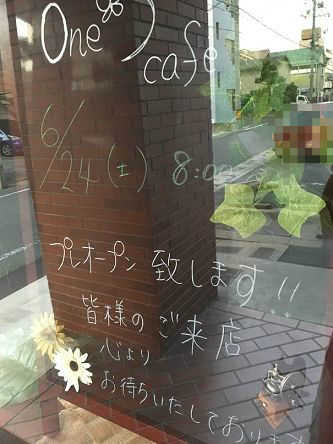 One's cafe
6/24(土) 8:00
プレオープン 致します!!
皆様のご来店
心より
お待ちいたしております